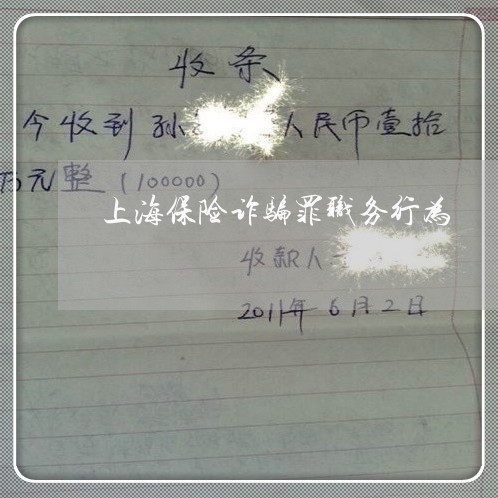 收条
今收到孙 人民币壹拾
万元整(100000)
上海保险诈骗罪职务行为
收款人
2011年6月2日